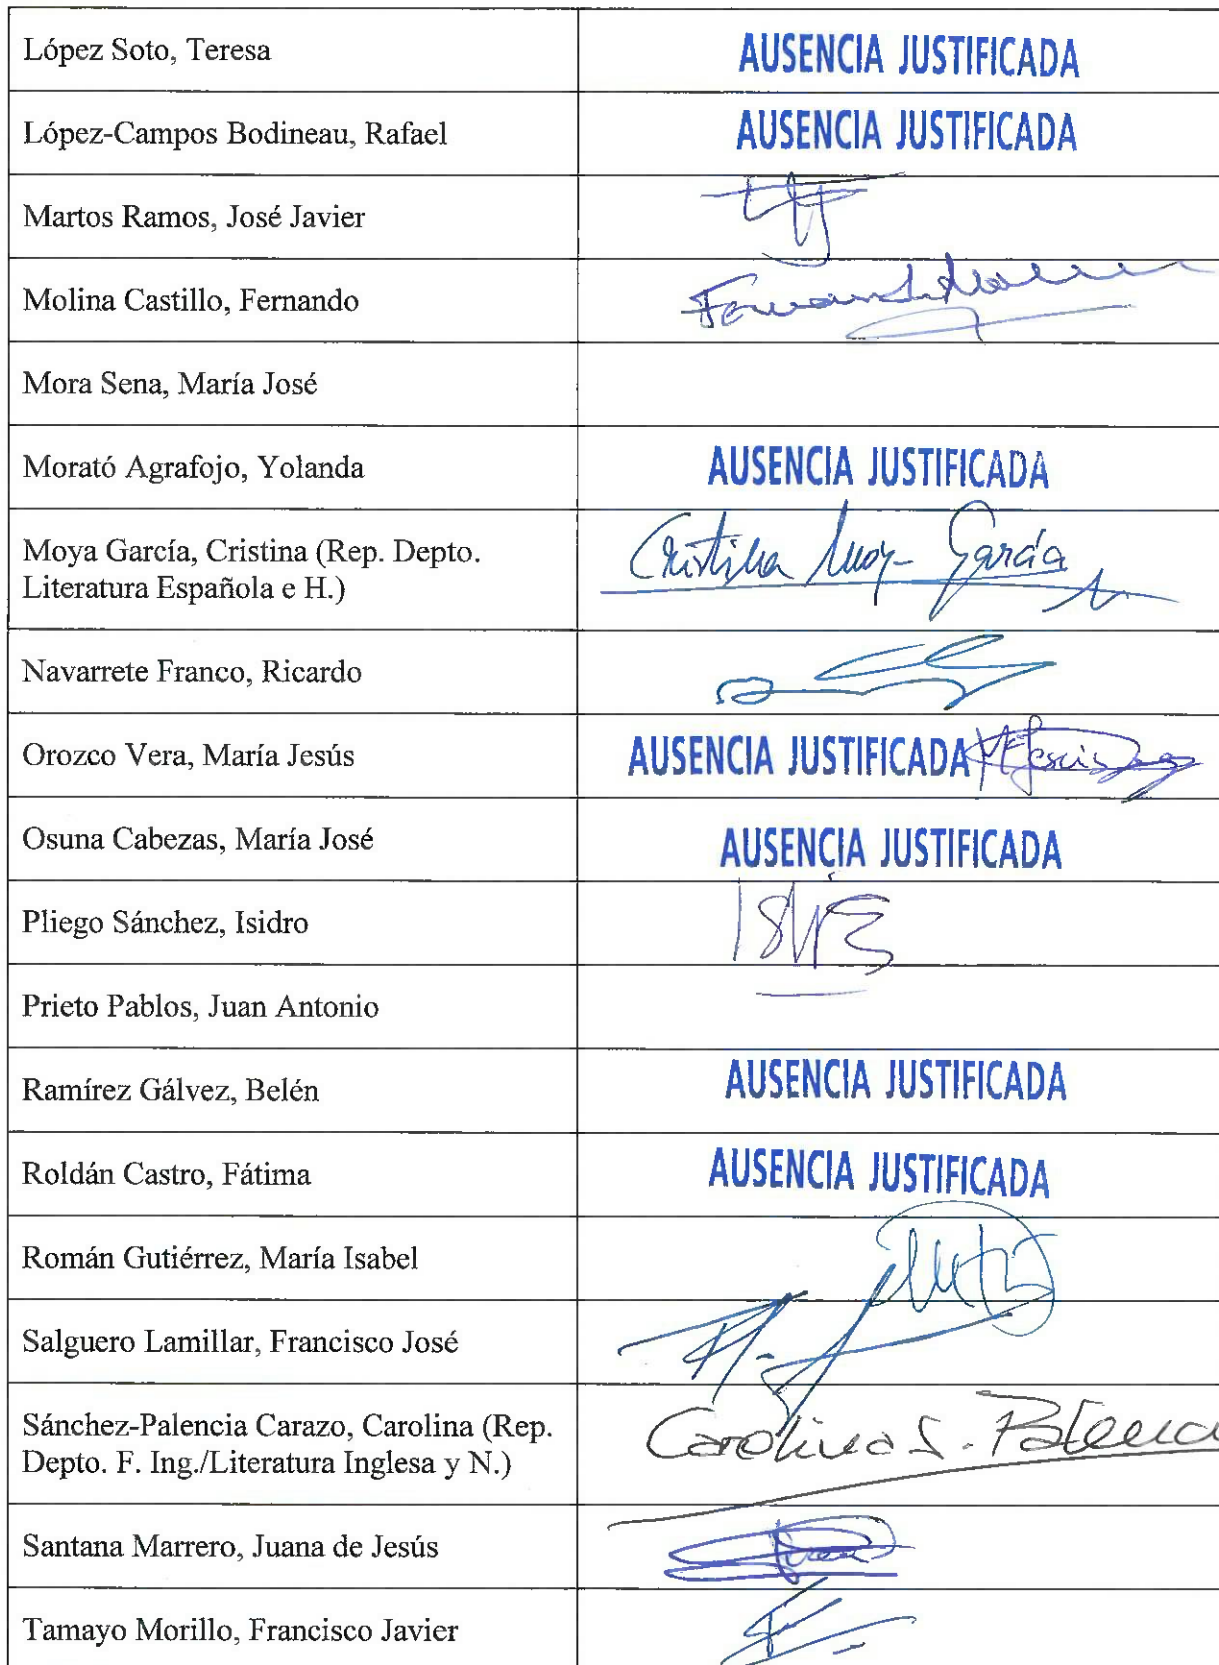 López Soto, Teresa
AUSENCIA JUSTIFICADA
López-Campos Bodineau, Rafael
AUSENCIA JUSTIFICADA
Martos Ramos, José Javier
Molina Castillo, Fernando
Mora Sena, María José
Morató Agrafojo, Yolanda
AUSENCIA JUSTIFICADA
Moya García, Cristina (Rep. Depto.
Literatura Española e H.)
Cristina Moya García
Navarrete Franco, Ricardo
Orozco Vera, María Jesús
AUSENCIA JUSTIFICADA
Osuna Cabezas, María José
AUSENCIA JUSTIFICADA
Pliego Sánchez, Isidro
Prieto Pablos, Juan Antonio
Ramírez Gálvez, Belén
AUSENCIA JUSTIFICADA
Roldán Castro, Fátima
AUSENCIA JUSTIFICADA
Román Gutiérrez, María Isabel
Salguero Lamillar, Francisco José
Sánchez-Palencia Carazo, Carolina (Rep.
Depto. F. Ing./Literatura Inglesa y N.)
Carolina S. Palencia
Santana Marrero, Juana de Jesús
Tamayo Morillo, Francisco Javier